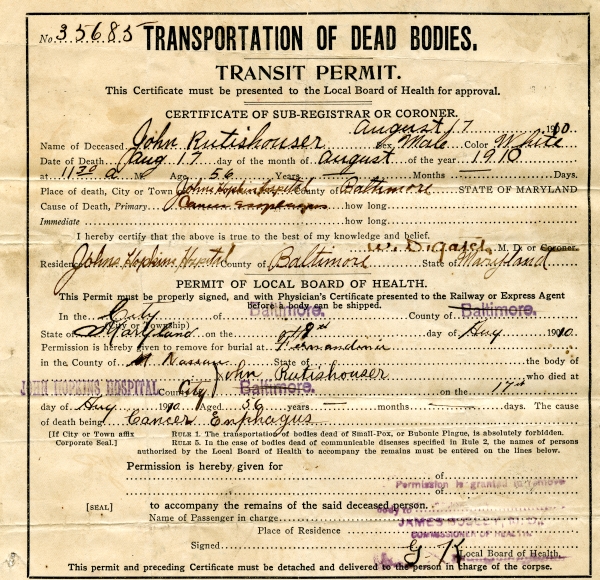 No. 35685
TRANSPORTATION OF DEAD BODIES.
TRANSIT PERMIT.
This Certificate must be presented to the Local Board of Health for approval.
CERTIFICATE OF SUB-REGISTRAR OR CORONER.
August 17 1910
Name of Deceased John Rutishouser Sex Male Color White
Date of Death Aug 17 day of the month of August of the year 1910
at 11 20 a M. Age 56 Years — Months — Days.
Place of death, City or Town Johns Hopkins Hospital County of Baltimore STATE OF MARYLAND
Cause of Death, Primary Cancer how long
Immediate how long
I hereby certify that the above is true to the best of my knowledge and belief.
M. D. or Coroner.
Residence Johns Hopkins Hospital County of Baltimore State of Maryland
PERMIT OF LOCAL BOARD OF HEALTH.
This Permit must be properly signed, and with Physician's Certificate presented to the Railway or Express Agent
before a body can be shipped.
In the City of Baltimore. County of Baltimore.
(City or Township)
State of Maryland on the 18th day of Aug 1910
Permission is hereby given to remove for burial at Fernandina
in the County of Nassau State of the body of
John Rutishouser who died at
JOHN HOPKINS HOSPITAL County City Baltimore. on the 17th
day of Aug 1910 Aged 56 years — months — days. The cause
of death being Cancer
[If City or Town affix Corporate Seal.]
RULE 1. The transportation of bodies dead of Small-Pox, or Bubonic Plague, is absolutely forbidden.
RULE 5. In case of bodies dead of communicable diseases specified in Rule 2, the names of persons
authorized by the Local Board of Health to accompany the remains must be entered on the lines below.
Permission is hereby given for of
of
Permission is granted to remove
body to
[SEAL] to accompany the remains of the said deceased person.
Name of Passenger in charge
JAMES
Place of Residence
COMMISSIONER OF HEALTH
Signed Local Board of Health.
This permit and preceding Certificate must be detached and delivered to the person in charge of the corpse.